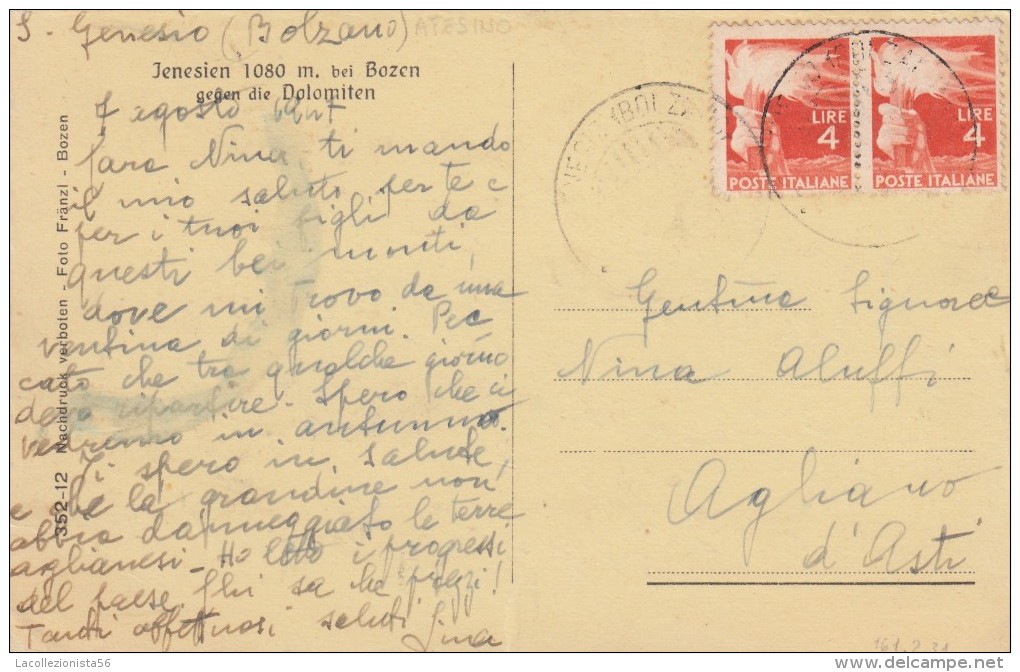 S. Genesio (Bolzano) ATESINO
Jenesien 1080 m. bei Bozen
gegen die Dolomiten
7 agosto 1947
Cara Nina, ti mando
il mio saluto per te e
per i tuoi figli da
questi bei monti,
dove mi trovo da una
ventina di giorni. Pec
cato che tra qualche giorno
devo ripartire. Spero che ci
vedremo in autunno.
Ti spero in salute,
e che la grandine non
abbia danneggiato le terre
aglianesi. Ho letto i progressi
del paese. Chi sa che prezzi!
Tanti affettuosi saluti
352-12 Nachdruck verboten - Foto Fränzl - Bozen
LIRE
4
POSTE ITALIANE
LIRE
4
POSTE ITALIANE
Gentil.ma Signora
Nina Aluffi
Agliano
d'Asti
Lacollezionista56
www.delcampe.net